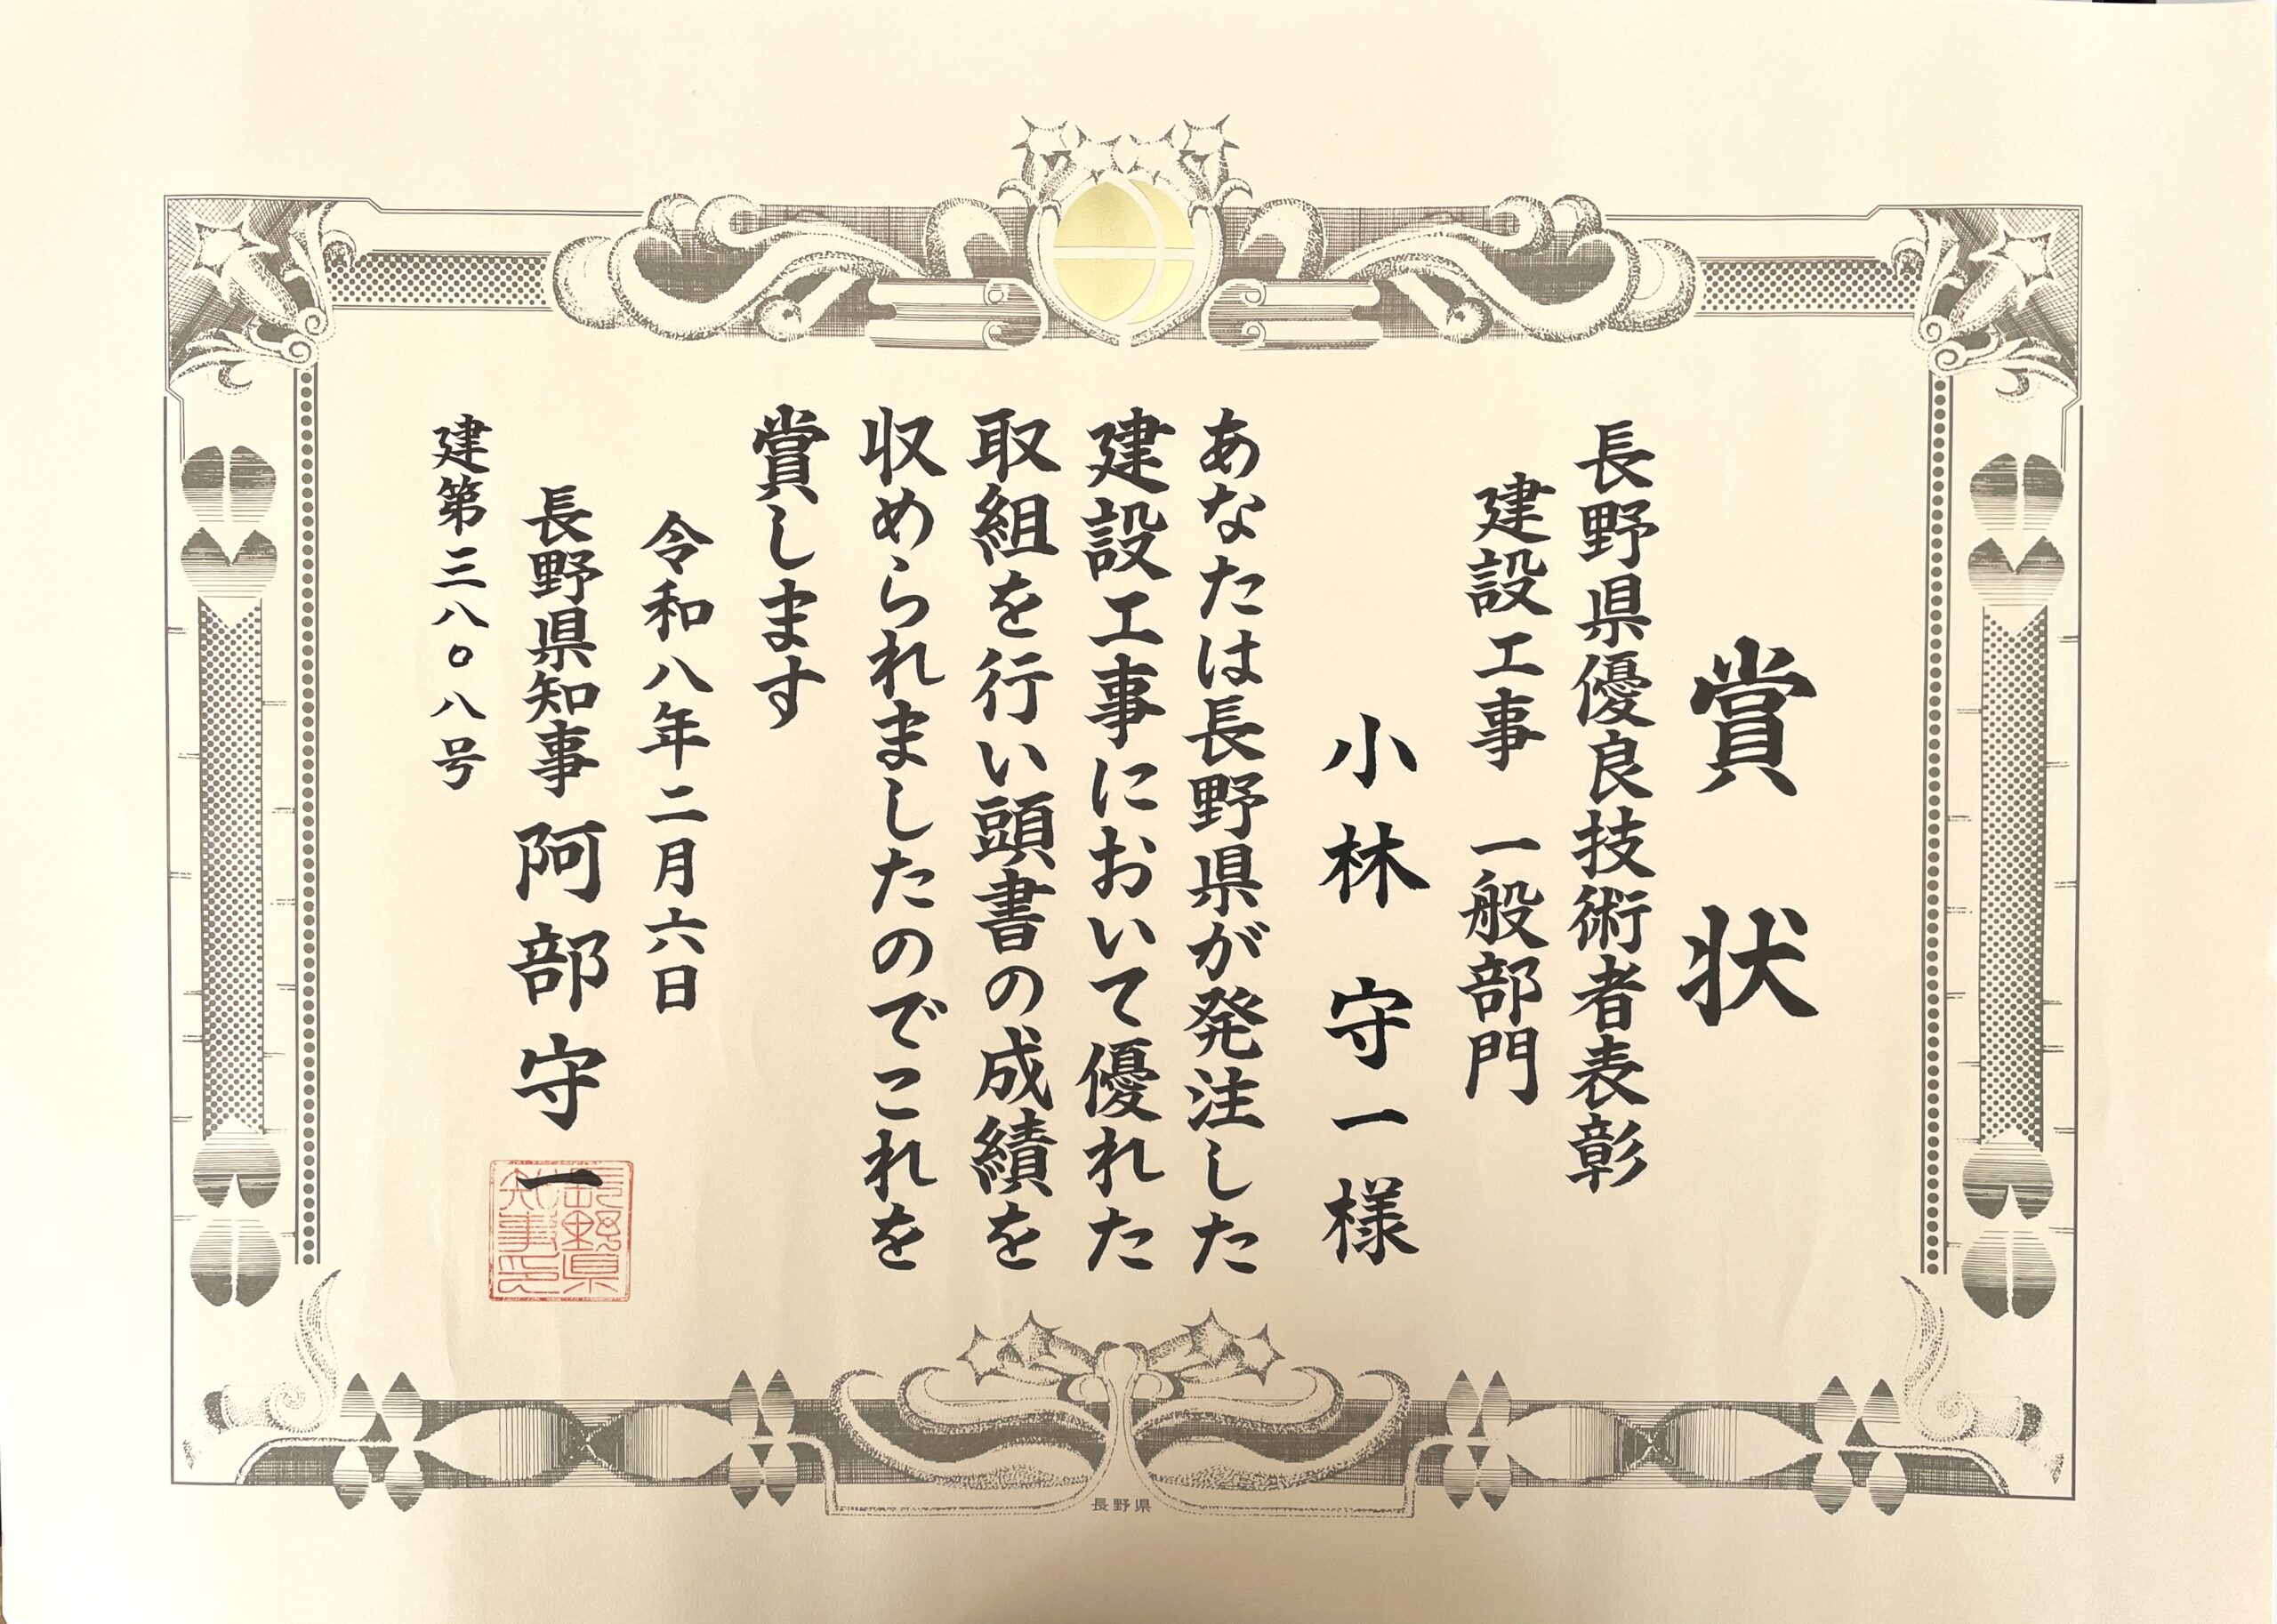 賞状
長野県優良技術者表彰
建設工事 一般部門
小林 守一 様
あなたは長野県が発注した
建設工事において優れた
取組を行い頭書の成績を
収められましたのでこれを
賞します
令和八年二月六日
長野県知事 阿部守一
長野県
知事印
建第三八〇八号
長野県